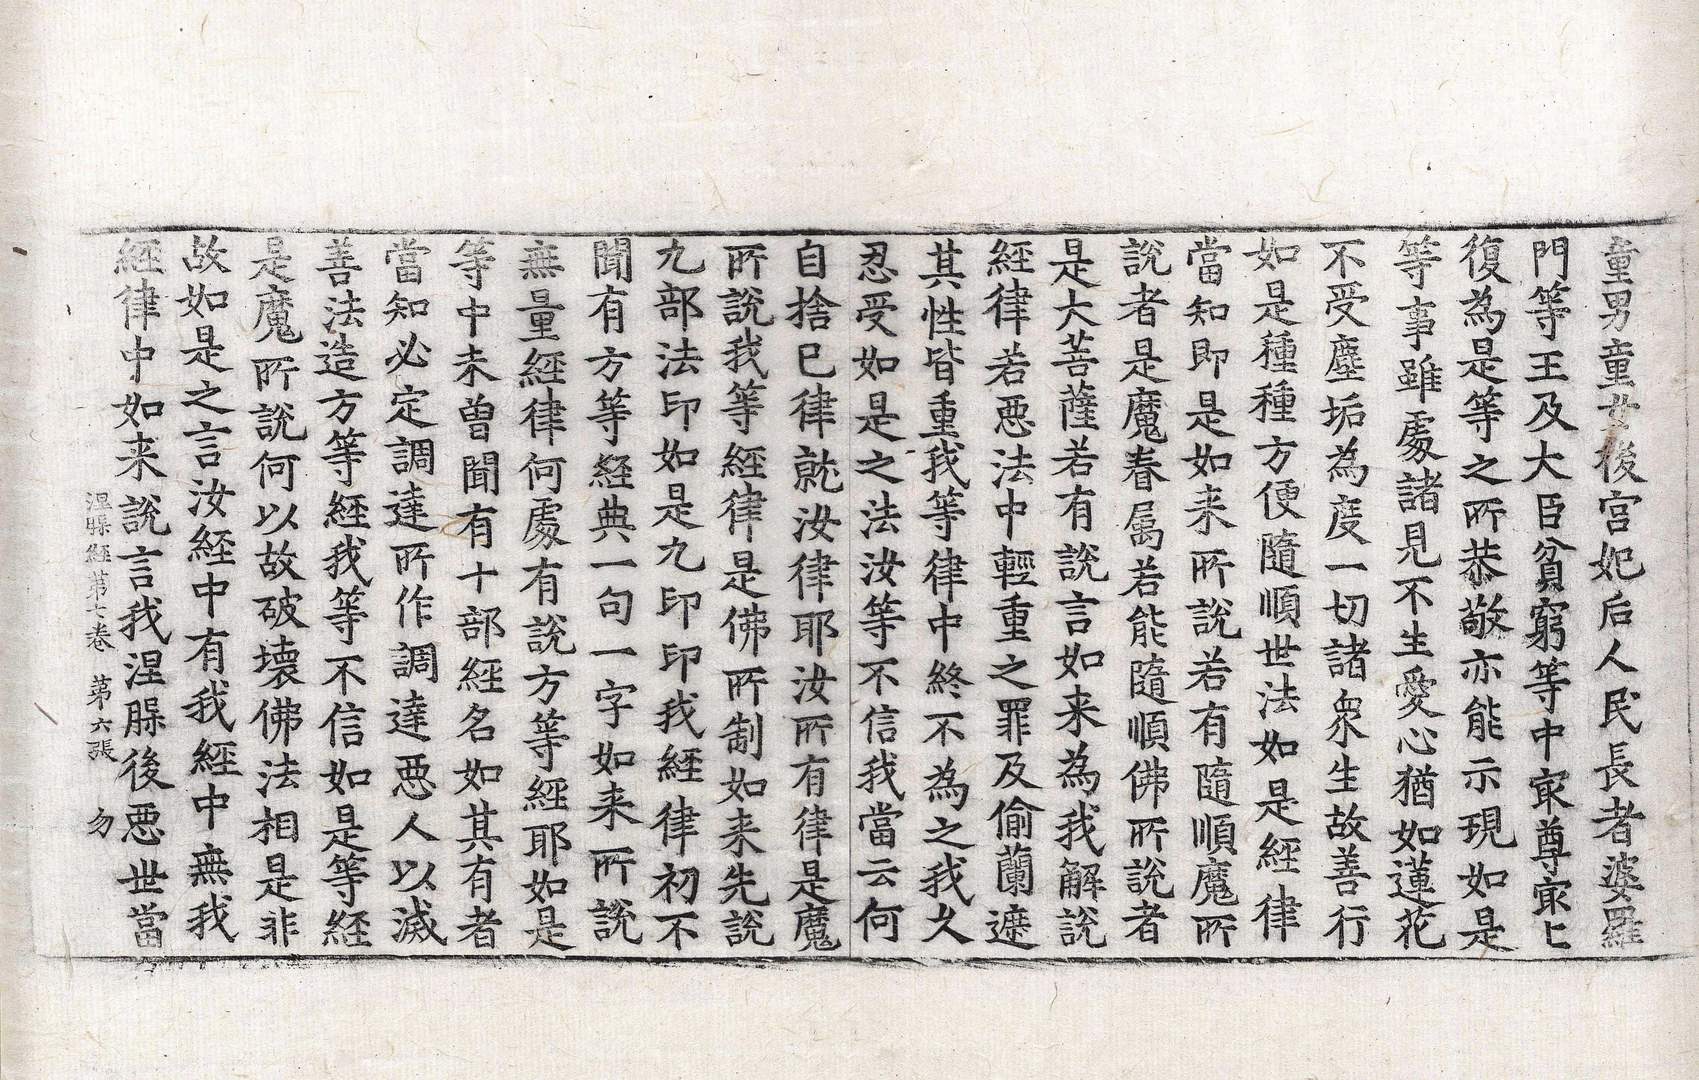 童男童女後宮妃后人民長者婆羅
門等王及大臣貧窮等中㝡尊㝡上
復為是等之所恭敬亦能示現如是
等事雖處諸見不生愛心猶如蓮花
不受塵垢為度一切諸衆生故善行
如是種種方便隨順世法如是經律
當知即是如来所說若有隨順魔所
說者是魔眷属若能隨順佛所說者
是大菩薩若有說言如来為我解說
經律若惡法中輕重之罪及偷蘭遮
其性皆重我等律中終不為之我久
忍受如是之法汝等不信我當云何
自捨已律就汝律耶汝所有律是魔
所說我等經律是佛所制如来先說
九部法印如是九印印我經律初不
聞有方等經典一句一字如来所說
無量經律何處有說方等經耶如是
等中未曾聞有十部經名如其有者
當知必定調達所作調達惡人以滅
善法造方等經我等不信如是等經
是魔所說何以故破壊佛法相是非
故如是之言汝經中有我經中無我
經律中如来說言我涅槃後惡世當
涅槃經第七卷 第六張 勿